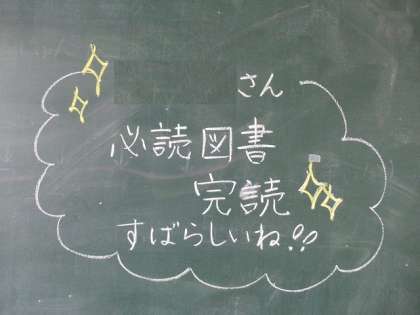 さん
必読図書
完読
すばらしいね!!